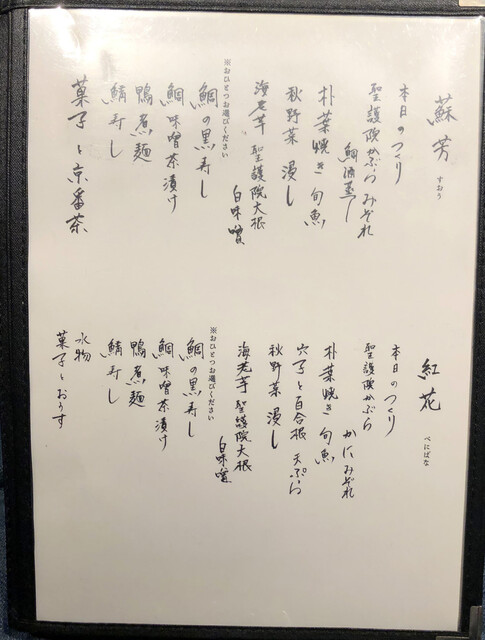 蘇芳
すおう
本日のつくり
聖護院かぶらみぞれ
鯛酒蒸し
朴葉焼き 旬魚
秋野菜 浸し
海老芋 聖護院大根
白味噌
※おひとつお選びください
鯛の黒寿し
鯛味噌茶漬け
鴨煮麺
鯖寿し
菓子と京番茶
紅花
べにばな
本日のつくり
聖護院かぶら
かにみぞれ
朴葉焼き 旬魚
穴子と百合根 天ぷら
秋野菜 浸し
海老芋 聖護院大根
白味噌
※おひとつお選びください
鯛の黒寿し
鯛味噌茶漬け
鴨煮麺
鯖寿し
水物
菓子とおうす